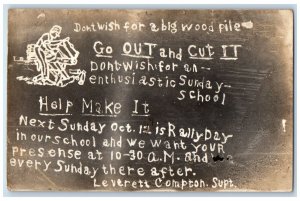 Dontwish for a big wood pile
Go OUT and Cut IT
Dont-wish-for-an-
enthusiastic Sunday-
school
Help Make It
Next Sunday Oct. 1st is Rally Day
in our school and we want your
presense at 10-30 A.M. and
every Sunday there after.
Leverett Compton. Supt.